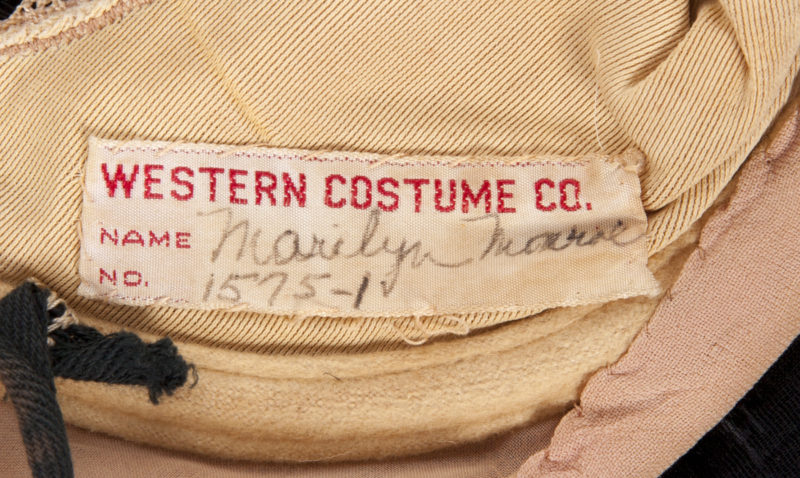 WESTERN COSTUME CO.
NAME Marilyn Monroe
NO. 1575-1